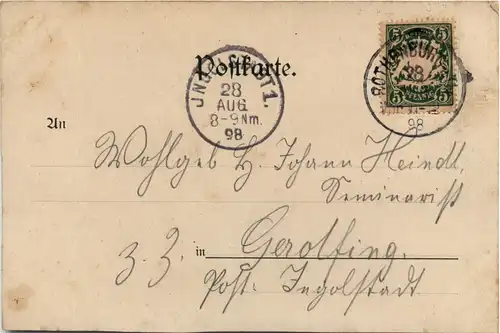 Postkarte.
JNGOLSTADT 1.
28
AUG
8-9 Nm.
98
5 5
ROTHENBURG
28
5 PFENNIG 5
98
An
Wohlgeb H. Johann Heindl
Seminarist
z. Z. in Gerolfing.
Post: Ingolstadt